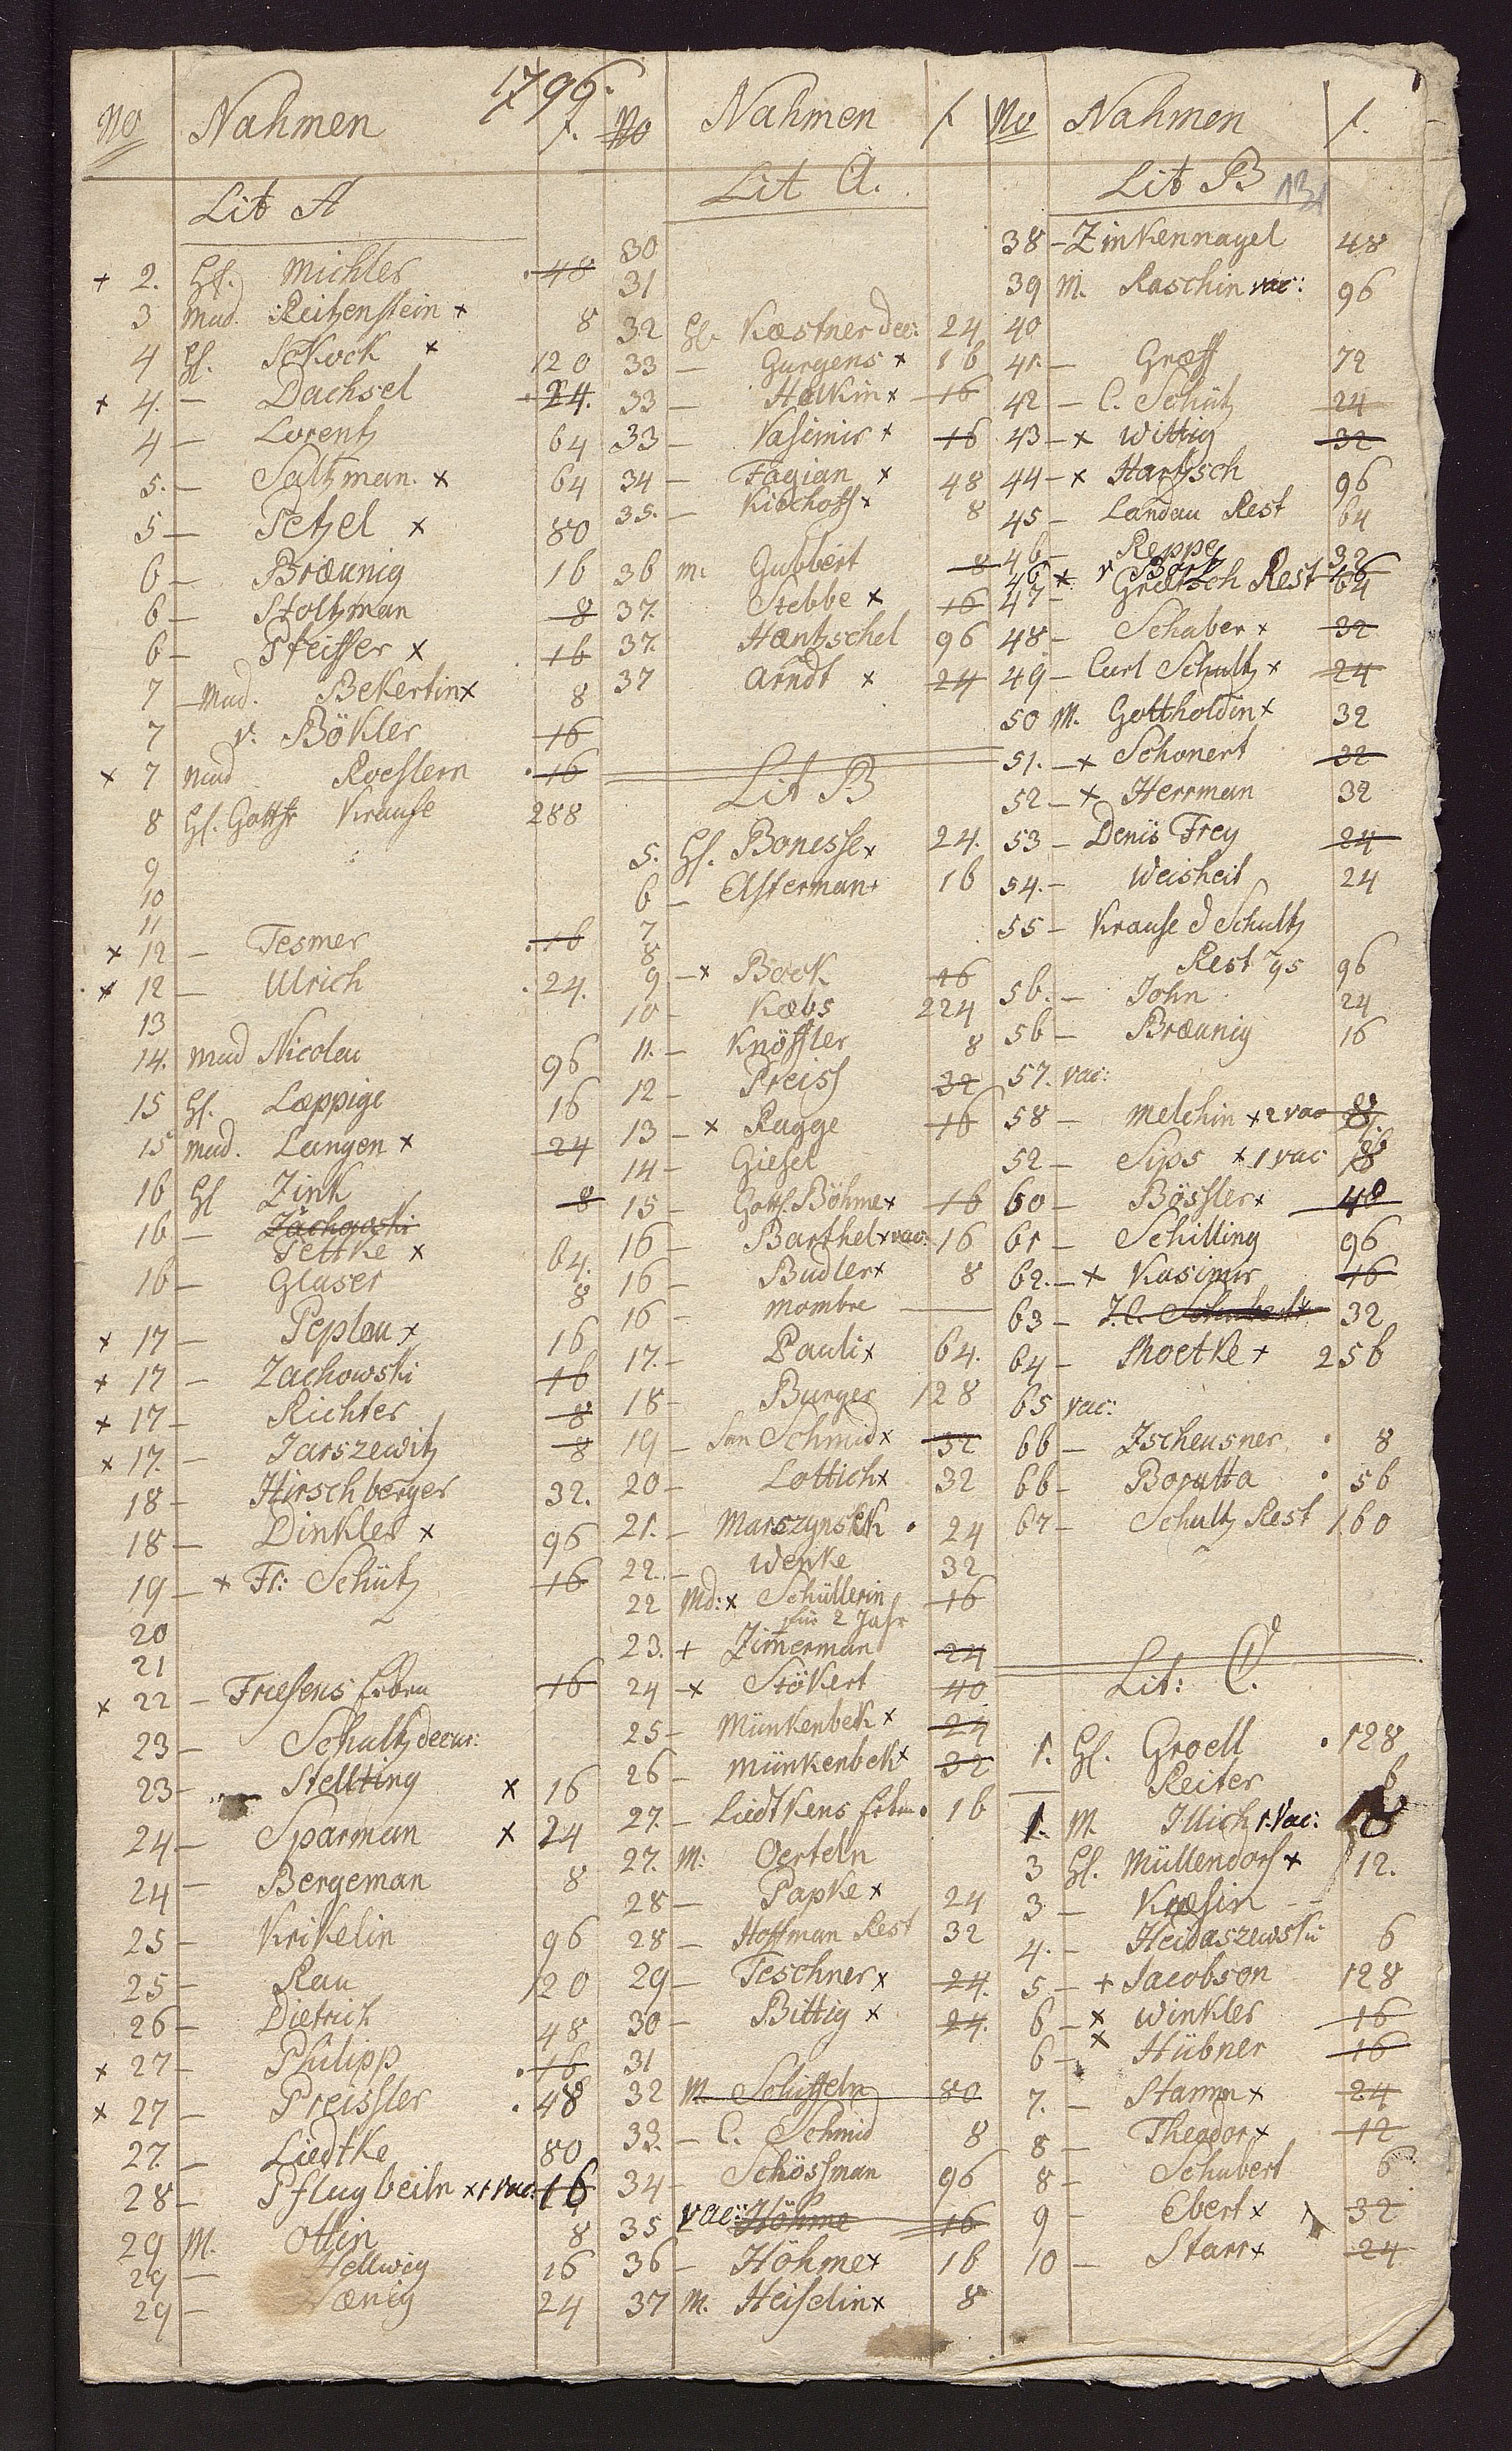 1796.
No Nahmen f.
Lit A
+ 2. Hl. Michler 48
3 Mad. Reitzenstein x 8
4 Hl. Schock x 120
x 4. — Dachsel 24.
4 — Lorentz 64
5. — Saltzman x 64
5 — Petzel x 80
6 — Bræunig 16
6 — Stoltzman 8
6 — Pfeiffer x 16
7 — Mad. Bekertin x 8
7 v. Bökler 16
x 7 Mad Roeslern 16
8 Hl. Gottfr Krause 288
9
10
11
x 12 — Tesmer 16
x 12 — Ulrich 24.
13
14. Mad Nicolau 96
15 Hl. Læppige 16
15 Mad. Langen x 24
16 Hl Zink 8
16 — Zachowski
Pettke x 64.
16 — Glaser 8
x 17 — Peplau x 16
x 17 — Zachowski 16
x 17 — Richter 8
x 17. — Jarszewitz 8
18 — Hirschberger 32.
18 — Dinkler x 96
19 — x Fr: Schütz 16
20
21
x 22 — Friesens Erben 16
23 — Schultz decur:
23 — Stellting x 16
24 — Sparman x 24
24 — Bergeman 8
25 — Krikelin 96
25 — Rau 120
26 — Dietrich 48
x 27 — Philipp 16
x 27 — Preissler 48
27. — Liedtke 80
28 — Pflugbeiln x 1 vac: 16
29 M. Ottin 8
29 — Hellwig 16
29 — 24
No Nahmen f
Lit A.
30
31
32 Hl. Kæstner dec: 24
33 — Gurgens x 16
33 — Halkin x 16
33 — Vasimir x 16
34 — Fagian x 48
35. — Kirchoff x 8
36 m. Gubbert 8
37. Stebbe x 16
37. Hæntzschel 96
37 Arndt x 24
Lit B
5. Hl. Bonesse x 24.
6 — Asterman + 16
7
8
9 — x Bock 16
10 — Kæbs 224
11. — Knöffler 8
12 — Preiss 32
13 — x Ragge 16
14 — Giesel
15 — Gottf. Böhme x 16
16 — Barthel x vac: 16
16 — Budler x 8
16 — Mombre —
17. — Pauli x 64.
18 — Burger 128
19 — Schmid x 32
20 — Lottich x 32
21. — Marszynski 24
22. — Wenke 32
22 Md: x Schüllerin 16
für 2 Jahr
23. + Zimerman 24
24 — x Stökert 40
25 — Münkenbek x 24
26 — Münkenbek x 32
27. — Liedtkens Erben 16
27. M: Oerteln
28 — Papke x 24
28 — Hoffman Rest 32
29 — Teschner x 24.
30 — Bittig x 24.
31
32 M. Schiffeln 80
33. — C. Schmid 8
34 — Schössman 96
35 vac: Höhme 16
36 — Höhme x 16
37 M. Heiselin x 8
No Nahmen f.
Lit B 131
38 — Zinkennagel 48
39 M. Raschin vac: 96
40
41. — Græff 72
42 — C. Schütz 24
43 — x Wittig 32
44 — x Hartzsch 96
45 — Landau Rest 64
46 — Reppe 32
46 x v Bartz 16
47 — Grætsch Rest 64
48 — Schaber x 32
49 — Carl Schultz x 24
50 M. Gottholdin x 32
51. — x Schonert 32
52 — x Herrman 32
53 — Denis Frey 24
54. — Weisheit 24
55 — Krause d Schultz
Rest 95 96
56. — John 24
56 — Bræunig 16
57. vac:
58 — Melchin x 2 vac 8
52 — Sips x 1 vac 8
60 — Bössler x 40
61 — Schilling 96
62. — x Kasimir 16
63 — J.C. Schubert 32
64 — Moetke x 256
65 vac:
66 — Zscheusner 8
66 — Borutta 56
67 — Schultz Rest 160
Lit: C.
1. Hl. Groell 128
— Reiter 6
1. M. Illich 1. Vac: 8
3 Hl. Müllendorf x 12.
3 — Kræsin
4. — Heidaszewski 6
5 — + Jacobson 128
6 — x Winkler 16
6 — x Hübner 16
7. — Stamm x 24
8 — Theodor x 12
8 — Schubert 6
9 — Ebert x 32
10 — Starr x 24